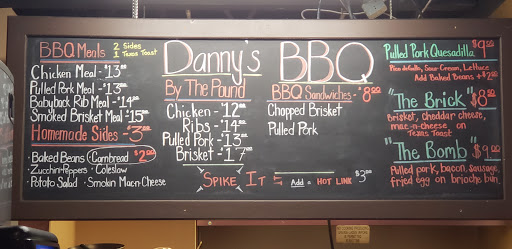 BBQ Meals 2 Sides
1 Texas Toast
Chicken Meal - $13.00
Pulled Pork Meal - $13.00
Babyback Rib Meal - $14.00
Smoked Brisket Meal - $15.00
Homemade Sides - $3.00
• Baked Beans Cornbread $2.00
• Zucchini Peppers • Coleslaw
• Potato Salad • Smokin Mac-n-Cheese
Danny's BBQ
By The Pound
Chicken - $12.00
Ribs - $14.00
Pulled Pork - $13.00
Brisket - $17.00
BBQ Sandwiches - $8.00
Chopped Brisket
Pulled Pork
Spike It = Add a HOT LINK $3.00
Pulled Pork Quesadilla $9.00
Pico de Gallo, Sour Cream, Lettuce
Add Baked Beans + $2.00
"The Brick" $8.50
brisket, cheddar cheese,
mac-n-cheese on
Texas Toast
"The Bomb" $9.00
Pulled pork, bacon, sausage,
fried egg on brioche bun.